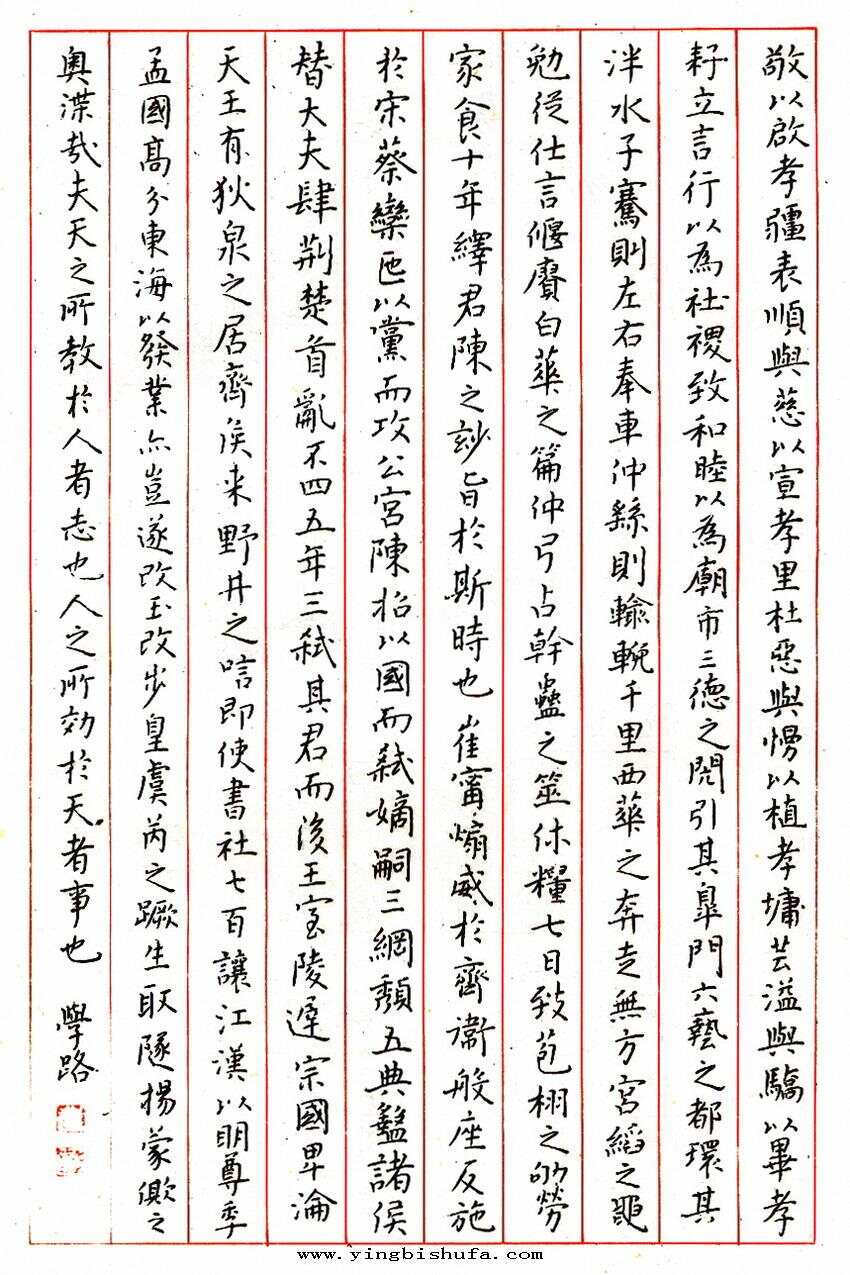 敬以啟孝疆表順與慈以宣孝里杜惡與慢以植孝墉芸溢與驕以畢孝
耔立言行以為社稷致和睦以為廟市三德之閌引其皐門六藝之都環其
泮水子騫則左右奉車仲繇則輸輓千里西華之奔走無方宮縚之黽
勉從仕言偃賡白華之篇仲弓占幹蠱之筮休糧七日致苞栩之劬勞
家食十年繹君陳之玅旨於斯時也崔甯煽威於齊衞般座反施
於宋蔡欒匜以黨而攻公宮陳招以國而弒嫡嗣三綱頹五典盭諸侯
替大夫肆荆楚首亂不四五年三弒其君而後王室陵遲宗國卑淪
天王有狄泉之居齊矦来野井之唁即使書社七百讓江漢以明尊季
孟國高分東海以發業亦豈遂改玉改步皇虞芮之蹶生耴隧揚蒙僛之
奧渫哉夫天之所教於人者志也人之所効於天者事也 學路
www.yingbishufa.com